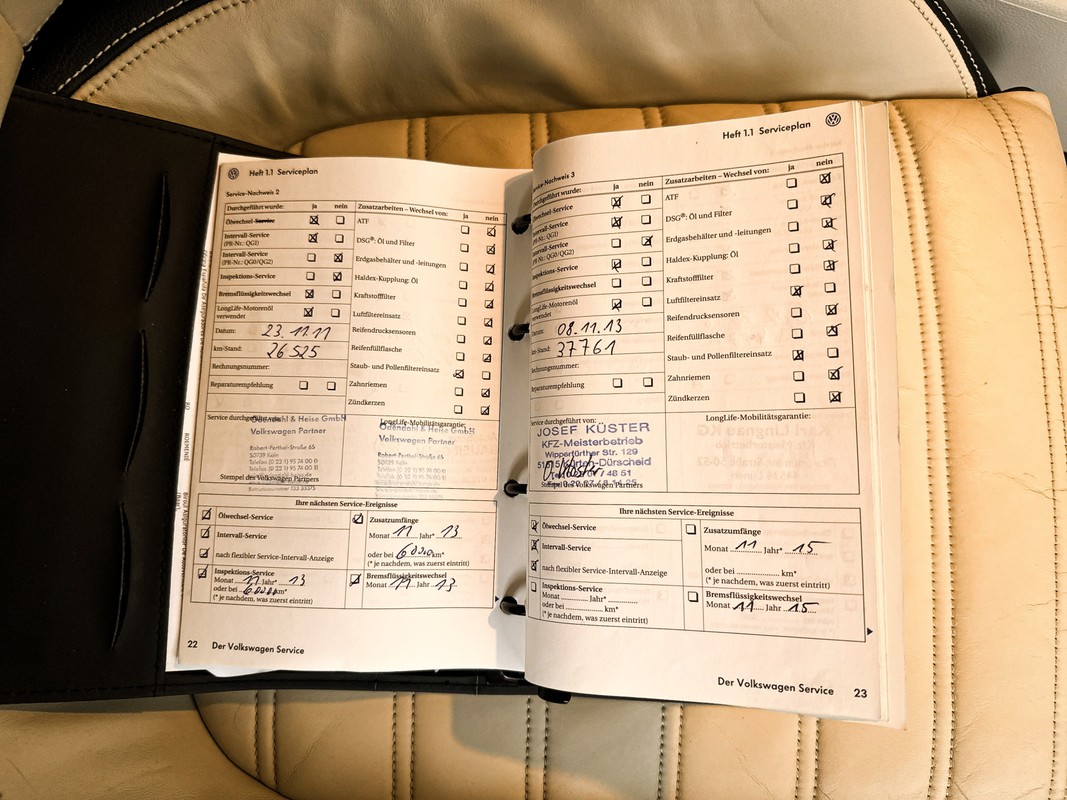 Heft 1.1 Serviceplan
Service-Nachweis 2
Durchgeführt wurde: ja nein
Ölwechsel-Service
Intervall-Service
(PR-Nr.: QG1)
Intervall-Service
(PR-Nr.: QG0/QG2)
Inspektions-Service
Bremsflüssigkeitswechsel
LongLife-Motorenöl
verwendet
Datum: 23.11.11
km-Stand: 26525
Rechnungsnummer:
Reparaturempfehlung
Zusatzarbeiten – Wechsel von: ja nein
ATF
DSG®: Öl und Filter
Erdgasbehälter und -leitungen
Haldex-Kupplung: Öl
Kraftstofffilter
Luftfiltereinsatz
Reifendrucksensoren
Reifenfüllflasche
Staub- und Pollenfiltereinsatz
Zahnriemen
Zündkerzen
Service durchgeführt von:
Odendahl & Heise GmbH
Volkswagen Partner
Robert-Perthel-Straße 65
50739 Köln
Telefon (0 22 1) 95 74 00 0
Stempel des Volkswagen Partners
LongLife-Mobilitätsgarantie:
Odendahl & Heise GmbH
Volkswagen Partner
Robert-Perthel-Straße 65
50739 Köln
Ihre nächsten Service-Ereignisse
Ölwechsel-Service
Intervall-Service
nach flexibler Service-Intervall-Anzeige
Inspektions-Service
Monat 11 Jahr* 13
oder bei 60000 km*
(* je nachdem, was zuerst eintritt)
Zusatzumfänge
Monat 11 Jahr* 13
oder bei 60000 km*
(* je nachdem, was zuerst eintritt)
Bremsflüssigkeitswechsel
Monat 11 Jahr 13
22 Der Volkswagen Service
Heft 1.1 Serviceplan
Service-Nachweis 3
Durchgeführt wurde: ja nein
Ölwechsel-Service
Intervall-Service
(PR-Nr.: QG1)
Intervall-Service
(PR-Nr.: QG0/QG2)
Inspektions-Service
Bremsflüssigkeitswechsel
LongLife-Motorenöl
verwendet
Datum: 08.11.13
km-Stand: 37761
Rechnungsnummer:
Reparaturempfehlung
Zusatzarbeiten – Wechsel von: ja nein
ATF
DSG®: Öl und Filter
Erdgasbehälter und -leitungen
Haldex-Kupplung: Öl
Kraftstofffilter
Luftfiltereinsatz
Reifendrucksensoren
Reifenfüllflasche
Staub- und Pollenfiltereinsatz
Zahnriemen
Zündkerzen
Service durchgeführt von:
JOSEF KÜSTER
KFZ-Meisterbetrieb
Wipperfürther Str. 129
51515 Kürten-Dürscheid
Stempel des Volkswagen Partners
LongLife-Mobilitätsgarantie:
Ihre nächsten Service-Ereignisse
Ölwechsel-Service
Intervall-Service
nach flexibler Service-Intervall-Anzeige
Inspektions-Service
Monat Jahr*
oder bei km*
(* je nachdem, was zuerst eintritt)
Zusatzumfänge
Monat 11 Jahr* 15
oder bei km*
(* je nachdem, was zuerst eintritt)
Bremsflüssigkeitswechsel
Monat 11 Jahr 15
Der Volkswagen Service 23